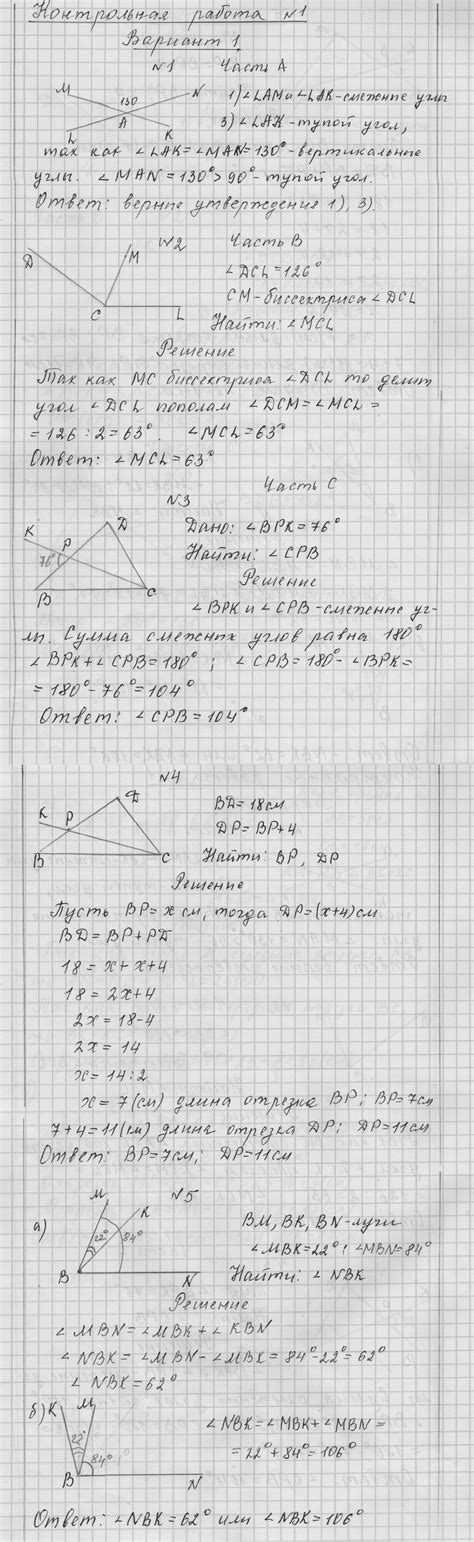 Контрольная работа №1
Вариант 1
№1 Часть А
M N 130 A L K
1) ∠LAM и ∠LAK - смежные углы
3) ∠LAK - тупой угол,
так как ∠LAK = ∠MAN = 130° - вертикальные
углы. ∠MAN = 130° > 90° - тупой угол.
Ответ: верные утверждения 1), 3).
№2 Часть В
D M C L
∠DCL = 126°
CM - биссектриса ∠DCL
Найти: ∠MCL
Решение
Так как MC биссектриса ∠DCL то делит
угол ∠DCL пополам ∠DCM = ∠MCL =
= 126 : 2 = 63°. ∠MCL = 63°
Ответ: ∠MCL = 63°
Часть С
№3
K D P 76° B C
Дано: ∠BPK = 76°
Найти: ∠CPB
Решение
∠BPK и ∠CPB - смежные уг-
лы. Сумма смежных углов равна 180°
∠BPK + ∠CPB = 180° ; ∠CPB = 180° - ∠BPK =
= 180° - 76° = 104°
Ответ: ∠CPB = 104°
№4
K P D B C
BD = 18 см
DP = BP + 4
Найти: BP, DP
Решение
Пусть BP = x см, тогда DP = (x+4) см
BD = BP + PD
18 = x + x + 4
18 = 2x + 4
2x = 18 - 4
2x = 14
x = 14 : 2
x = 7 (см) длина отрезка BP; BP = 7 см
7 + 4 = 11 (см) длина отрезка DP; DP = 11 см
Ответ: BP = 7 см; DP = 11 см
№5
а) M K 22° 84° B N
BM, BK, BN - лучи
∠MBK = 22°; ∠MBN = 84°
Найти: ∠NBK
Решение
∠MBN = ∠MBK + ∠KBN
∠NBK = ∠MBN - ∠MBK = 84° - 22° = 62°
∠NBK = 62°
б) K M 22° 84° B N
∠NBK = ∠MBK + ∠MBN =
= 22° + 84° = 106°
Ответ: ∠NBK = 62° или ∠NBK = 106°